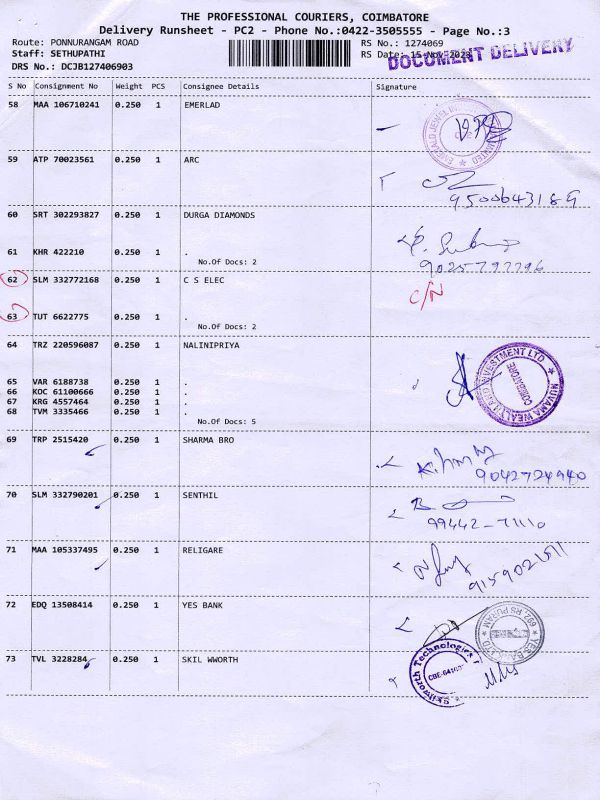 THE PROFESSIONAL COURIERS, COIMBATORE
Delivery Runsheet - PC2 - Phone No.:0422-3505555 - Page No.:3
Route: PONNURANGAM ROAD
RS No.: 1274069
Staff: SETHUPATHI
RS Date: 15-Nov-2023
DOCUMENT DELIVERY
DRS No.: DCJB127406903
S No Consignment No Weight PCS Consignee Details Signature
58 MAA 106710241 0.250 1 EMERLAD
59 ATP 70023561 0.250 1 ARC
9500643189
60 SRT 302293827 0.250 1 DURGA DIAMONDS
61 KHR 422210 0.250 1 .
No.Of Docs: 2
9025797796
62 SLM 332772168 0.250 1 C S ELEC
C/N
63 TUT 6622775 0.250 1 .
No.Of Docs: 2
64 TRZ 220596087 0.250 1 NALINIPRIYA
NUVAMA WEALTH AND INVESTMENT LTD
COIMBATORE
65 VAR 6188738 0.250 1 .
66 KOC 61100666 0.250 1 .
67 KRG 4557464 0.250 1 .
68 TVM 3335466 0.250 1 .
No.Of Docs: 5
69 TRP 2515420 0.250 1 SHARMA BRO
9042724940
70 SLM 332790201 0.250 1 SENTHIL
99442-71110
71 MAA 105337495 0.250 1 RELIGARE
72 EDQ 13508414 0.250 1 YES BANK
73 TVL 3228284 0.250 1 SKIL WWORTH
Skillworth Technologies